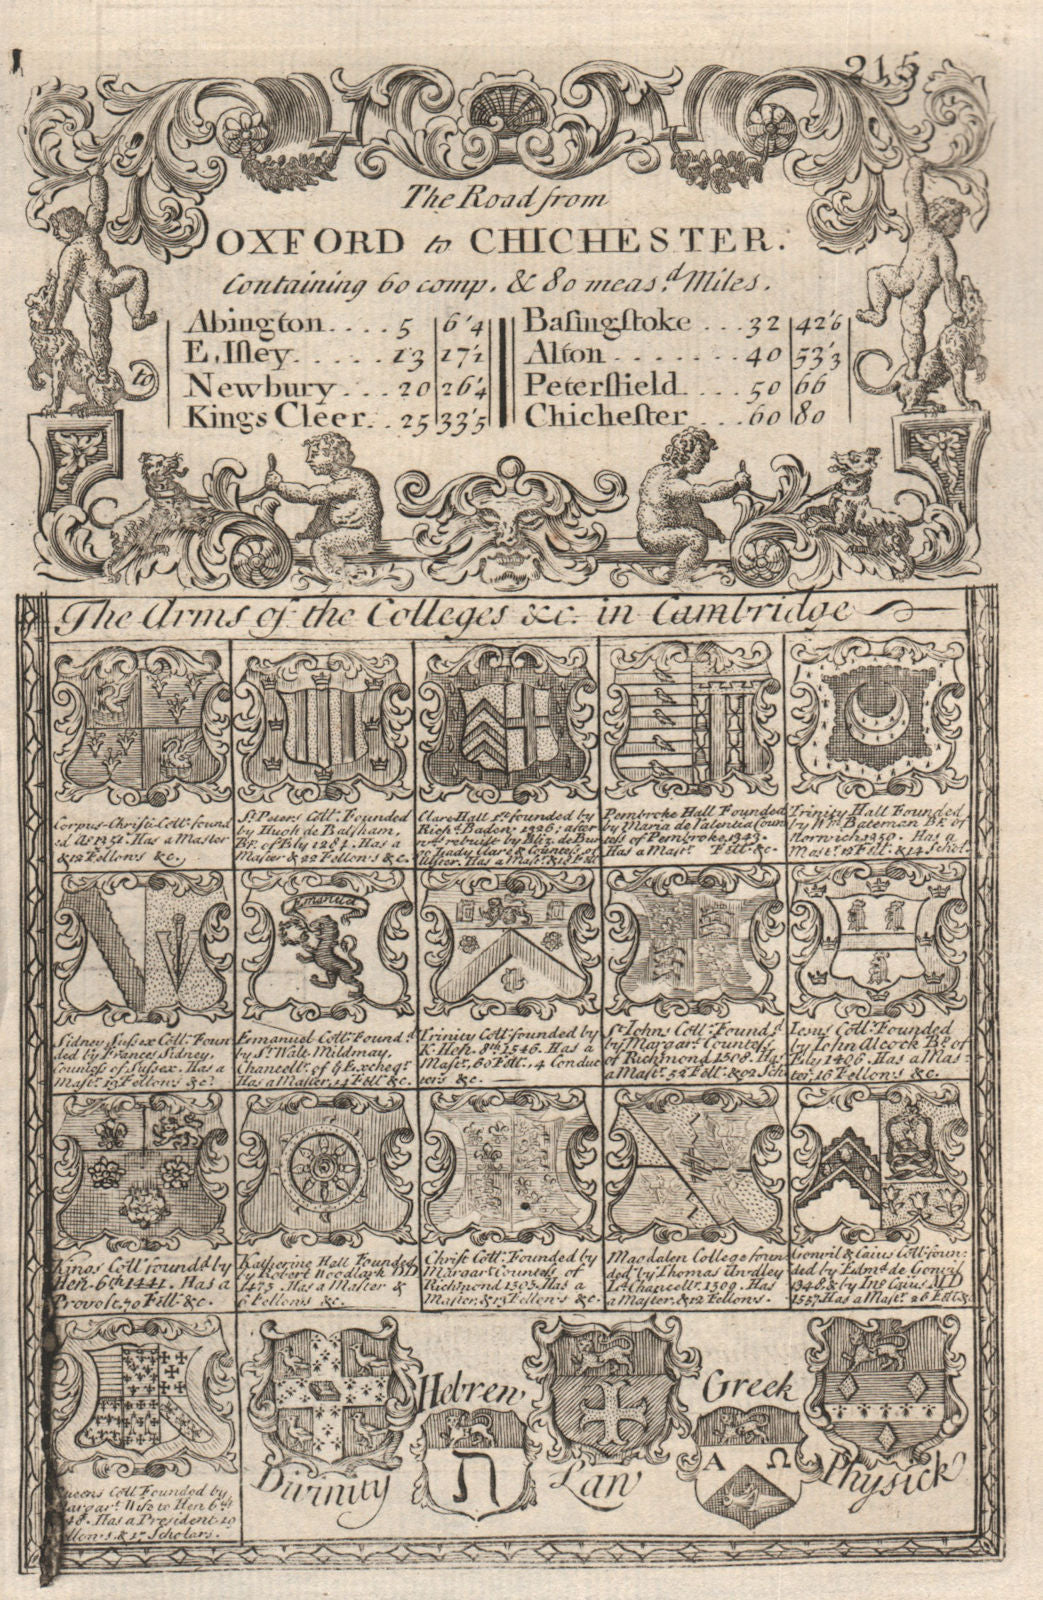 215
The Road from
OXFORD to CHICHESTER.
Containing 60 comp. & 80 meas.d Miles.
Abington.... 5 | 6'4
E. Ilsley..... 13 | 17'1
Newbury... 20 | 26'4
Kings Cleer.. 25 | 33'5
to
Basingstoke ... 32 | 42'6
Alton ....... 40 | 53'3
Petersfield ... 50 | 66
Chichester ... 60 | 80
The Arms of the Colleges &c. in Cambridge
Corpus-Christi Coll: found
ed A.o 1351. Has a Master
& 12 Fellows &c.
St. Peters Coll: Founded
by Hugh de Balsham,
Bp. of Ely 1284. Has a
Master & 22 Fellows & c.
Clare Hall 1st. founded by
Richd. Baden; 1326; after
wds rebuilt by Eliz. de Bur
Clare & Countess of
Ulster. Has a Mastr. & 18 Fell
Pembroke Hall Founded
by Maria de Valentia Coun
tess of Pembroke, 1343.
Has a Mastr. Fell: &c.
Trinity Hall Founded
by Wm. Bateman Bp. of
Norwich 1350. Has a
Mastr. 12 Fell. & 14 Schol.
Sidney Sussex Coll: Foun
ded by Frances Sidney,
Countess of Sussex. Has a
Mastr. 12 Fellows &c.
Emanuel
Emanuel Coll: Found.d
by Sr. Walt. Mildmay,
Chancellr. of ye Excheqr.
Has a Master, 14 Fell: &c.
Trinity Coll: founded by
K. Hen. 8th. 1546. Has a
Mastr. 60 Fell:, 4 Conduc
ters &c.
St. Iohns Coll: Found.d
by Margart. Countess
of Richmond 1508. Has
a Mastr. 52 Fell: & 92 Sch
Iesus Coll: Founded
by Iohn Alcock Bp. of
Ely 1496. Has a Mas-
ter, 16 Fellows & c.
Kings Coll: found.d by
Hen. 6th 1441. Has a
Provost, 70 Fell: & c.
Katherine Hall Founded
by Robert Woodlark DD
1475. Has a Master &
6 Fellows &c.
Christ Coll: Founded by
Margart. Countess of
Richmond 1505. Has a
Master, & 15 Fellows & c.
Magdalen College foun
ded by Thomas Audley
Ld. Chancellr. 1509. Has
a Master, & 12 Fellows.
Gonvil & Caius Coll: foun:
ded by Edmd. de Gonvil
1348. & by Ino Caius MD
1557. Has a Mastr. 26 Fell: &c
Queens Coll Founded by
Margart. Wife to Hen 6th
48. Has a President 19
Fellows, & 17 Scholars.
Divinity
Hebrew
ת
Law
Greek
Α Ω
Physick